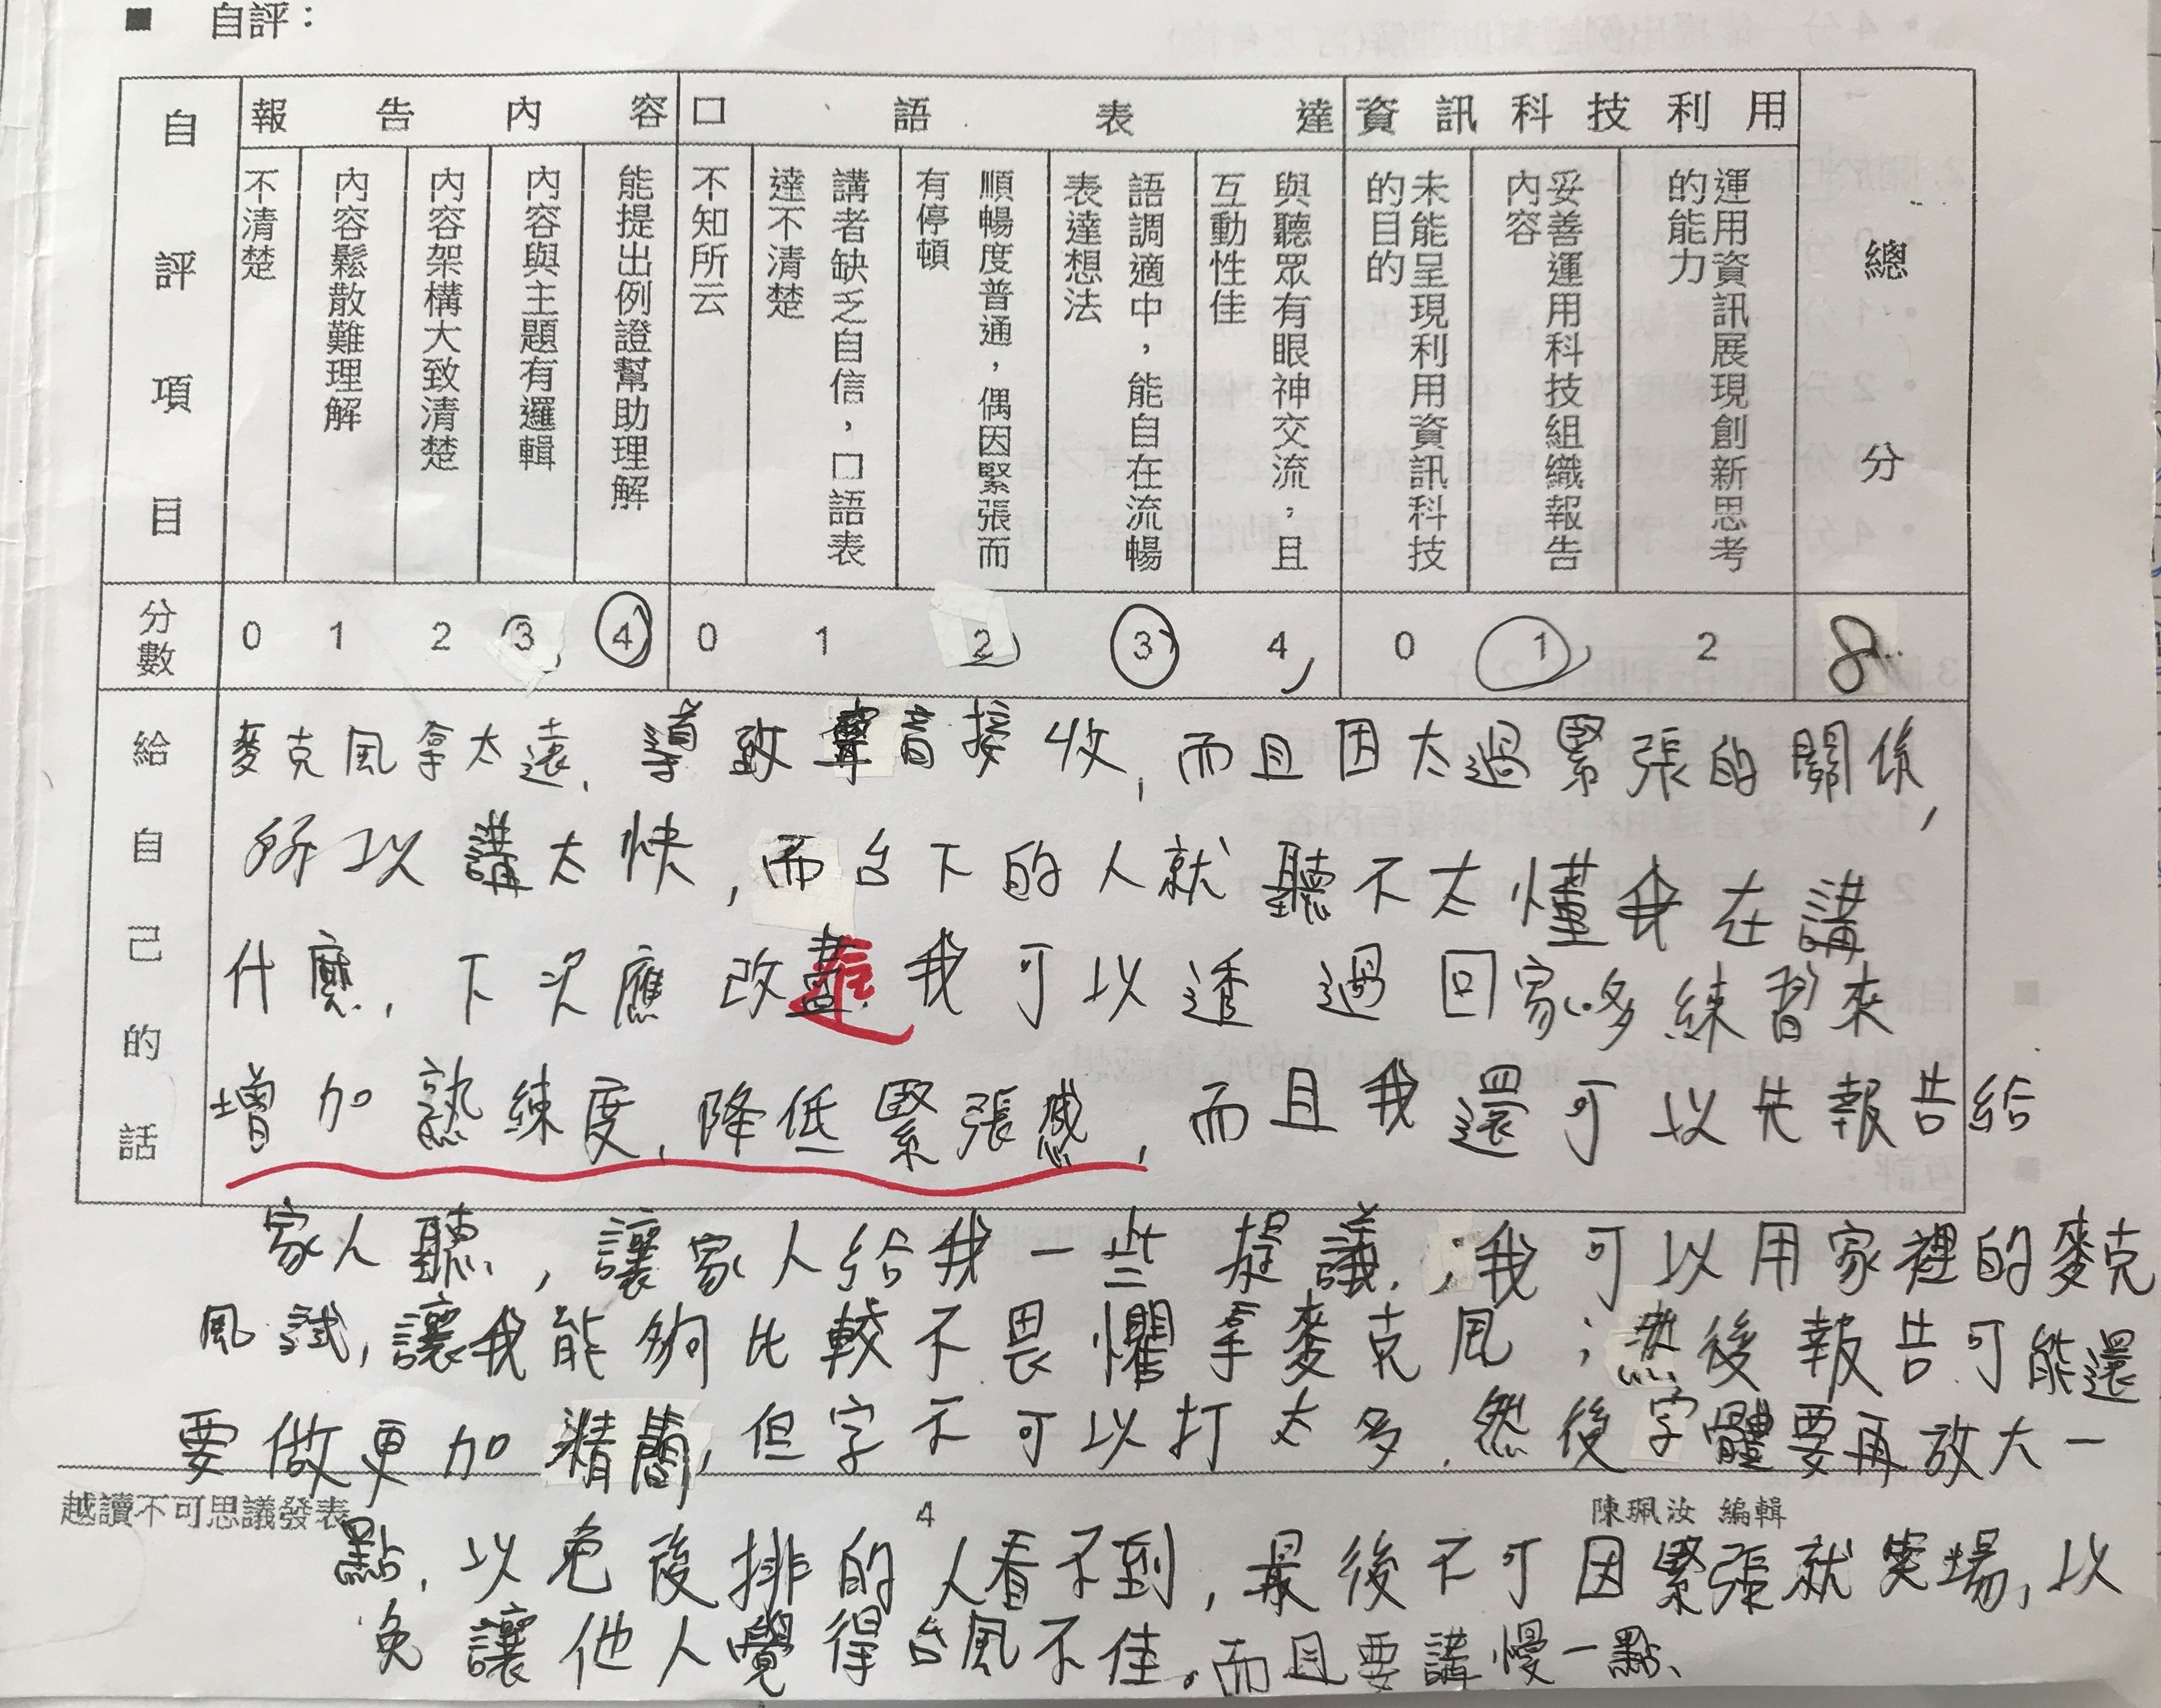 ■ 自評：
自評項目
報告內容
口語表達
資訊科技利用
總分
不清楚
內容鬆散難理解
內容架構大致清楚
內容與主題有邏輯
能提出例證幫助理解
不知所云
講者缺乏自信，口語表
達不清楚
順暢度普通，偶因緊張而
有停頓
語調適中，能自在流暢
表達想法
與聽眾有眼神交流，且
互動性佳
未能呈現利用資訊科技
的目的
妥善運用科技組織報告
內容
運用資訊展現創新思考
的能力
分數
0 1 2 3 4 0 1 2 3 4 0 1 2 8
給自己的話
麥克風拿太遠，導致聲音接收，而且因太過緊張的關係，
所以講太快，而台下的人就聽不太懂我在講
什麼，下次應改進，我可以透過回家多練習來
增加熟練度，降低緊張感，而且我還可以先報告給
家人聽，讓家人給我一些提議，；我可以用家裡的麥克
風試，讓我能夠比較不畏懼拿麥克風；然後報告可能還
要做更加精簡，但字不可以打太多，然後字體要再放大一
越讀不可思議發表 4 陳珮汝 編輯
點，以免後排的人看不到，最後不可因緊張就笑場，以
免讓他人覺得台風不佳。而且要講慢一點、